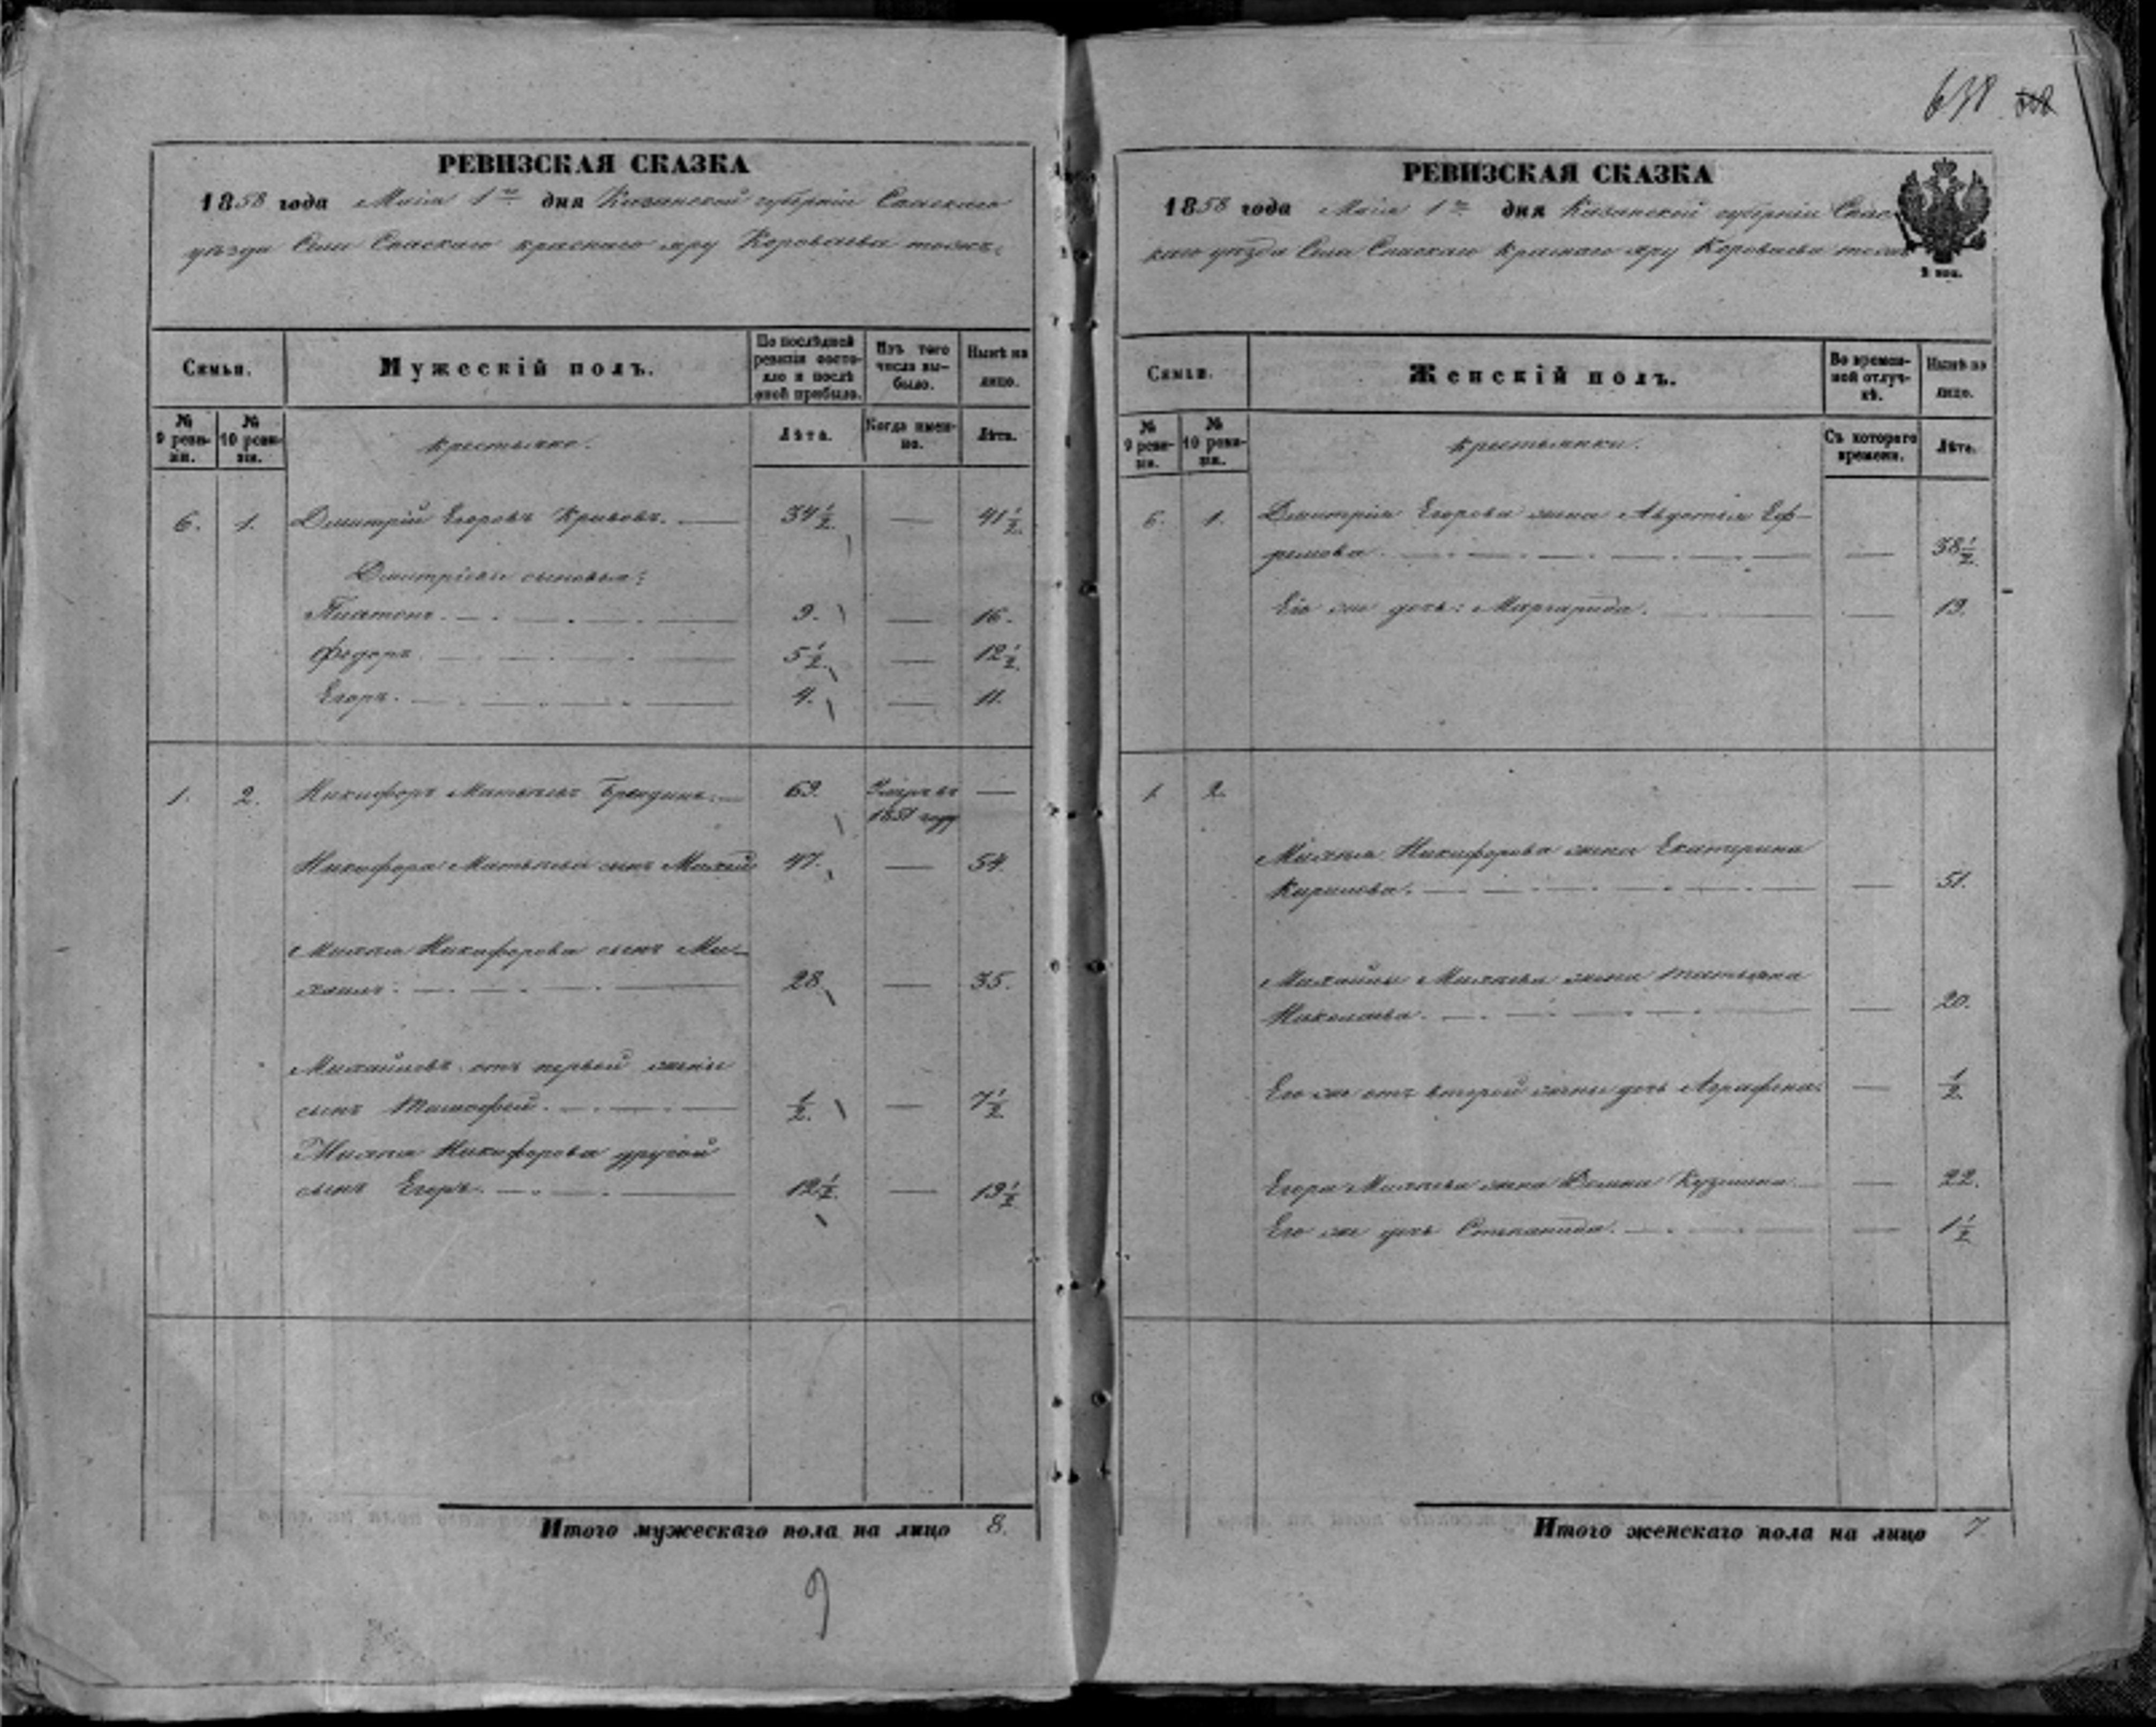 638
РЕВИЗСКАЯ СКАЗКА
1858 года Маія 1го дня Казанской губерніи Спаскаго
уѣзда Села Спаскаго краснаго яру Короваева тожъ.
Семьи.
Мужескій полъ.
По послѣдней ревизіи состояло и послѣ оной прибыло.
Изъ того числа выбыло.
Нынѣ на лицо.
№ 9 ревизіи.
№ 10 ревизіи.
Крестьяне.
Лѣта.
Когда именно.
Лѣта.
6. 1. Дмитрій Егоровъ Кривовъ. 34 1/2 — 41 1/2
Дмитріевы сыновья:
Платонъ. 9. — 16.
Федоръ. 5 1/2 — 12 1/2
Егоръ. 4. — 11.
1. 2. Никифоръ Матвѣевъ 69. Умеръ въ 1851 году —
Никифора Матвѣева сынъ Михей 47. — 54.
Михѣя Никифорова сынъ Ми-
хаилъ. 28. — 35.
Михайловъ отъ первой жены
сынъ Тимофей. 1/2 — 7 1/2
Михѣя Никифорова другой
сынъ Егоръ. 12 1/2 — 19 1/2
Итого мужескаго пола на лицо 8.
9
РЕВИЗСКАЯ СКАЗКА
1858 года Маія 1го дня Казанской губерніи Спас-
каго уѣзда Села Спаскаго Краснаго яру Короваева тожъ
Семьи.
Женскій полъ.
Во временной отлучкѣ.
Нынѣ на лицо.
№ 9 ревизіи.
№ 10 ревизіи.
Крестьянки.
Съ котораго времени.
Лѣта.
6. 1. Дмитрія Егорова жена Авдотья Еф-
ремова. — 38 1/2
Его же дочь: Маргарита. — 19.
1. 2.
Михѣя Никифорова жена Екатерина
Кирилова. — 51.
Михайлы Михѣева жена Татьяна
Николаева. — 20.
Его же отъ второй жены дочь Аграфена. — 1/2
Егора Михѣева жена Домна Кузмина — 22.
Его же дочь Степанида. — 1 1/2
Итого женскаго пола на лицо 7